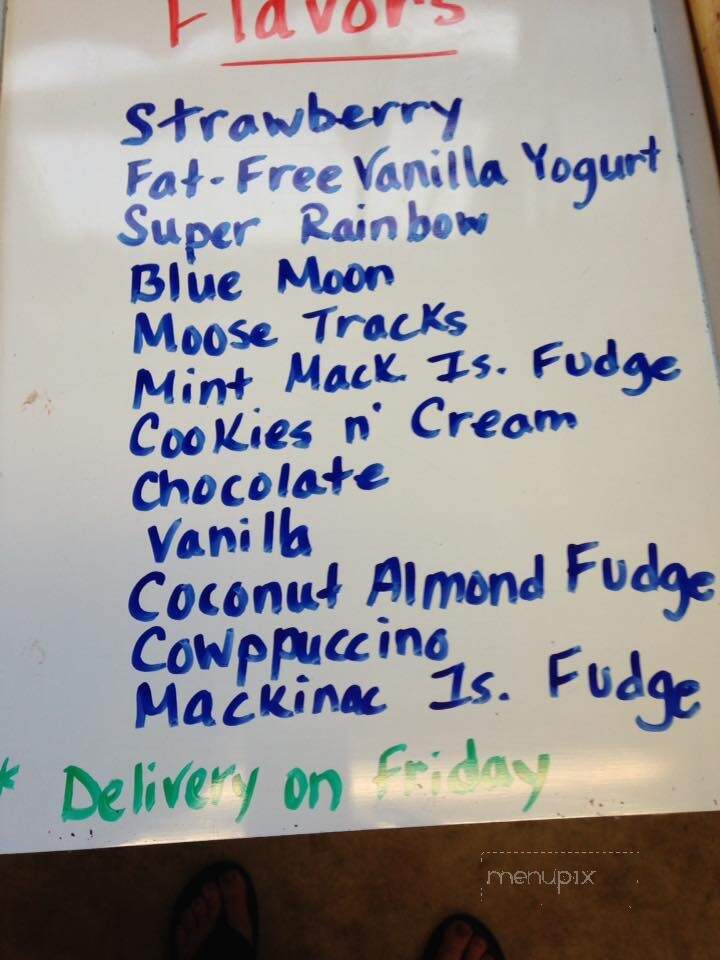 Flavors
Strawberry
Fat-Free Vanilla Yogurt
Super Rainbow
Blue Moon
Moose Tracks
Mint Mack. Is. Fudge
Cookies n' Cream
Chocolate
Vanilla
Coconut Almond Fudge
Cowppuccino
Mackinac Is. Fudge
* Delivery on Friday
menupix